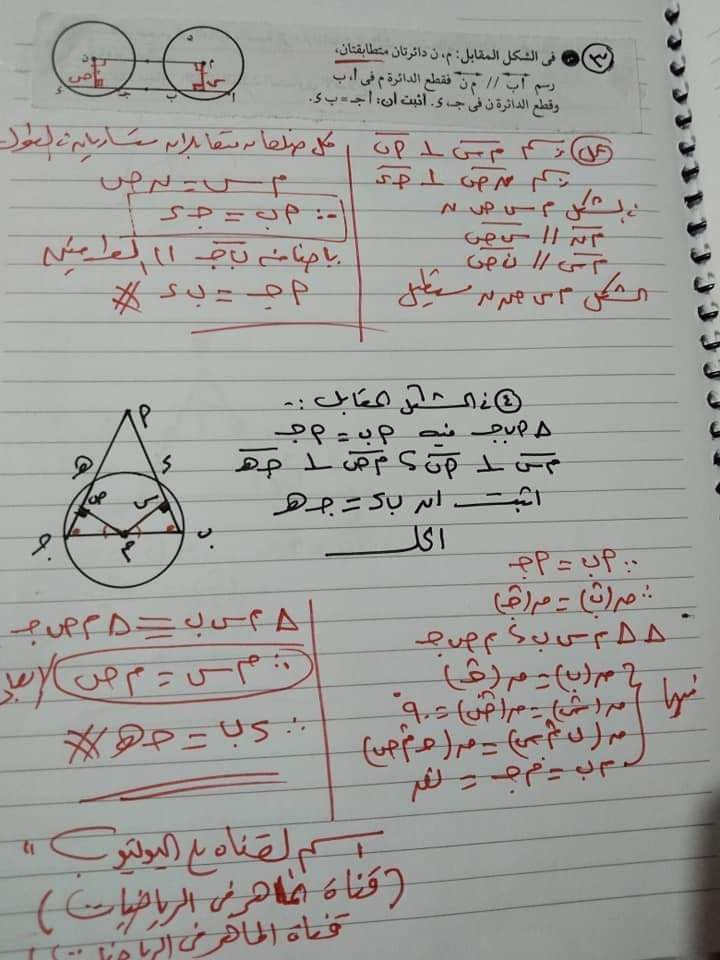 ٣ في الشكل المقابل: م، ن دائرتان متطابقتان،
رسم أب // م ن فقطع الدائرة م في أ، ب
وقطع الدائرة ن في جـ، ء. أثبت أن: أ جـ = ب ء.
م
ن
س
ص
أ
ب
جـ
ء
العمل نرسم م س ⊥ أب
نرسم ن ص ⊥ جـ ء
في الشكل م س ص ن
م ن // س ص
م س // ن ص
الشكل م س ص ن مستطيل
كل ضلعان متقابلان متساويان في الطول
م س = ن ص
∴ أب = جـ ء
بإضافة ب جـ الى الطرفين
أ جـ = ب ء #
٤ في الشكل المقابل :-
Δ أ ب جـ فيه أب = أ جـ
م س ⊥ أب ، م ص ⊥ جـ هـ
اثبت ان ب ء = جـ هـ
الحل
أ
هـ
ء
ص
س
جـ
م
ب
∵ أب = أ جـ
∴ ق(ب) = ق(جـ)
Δ Δ م س ب ، م ص جـ
فيهما
ق(ب) = ق(جـ)
ق(س) = ق(ص) = ٩٠
ق(ب م س) = ق(جـ م ص)
م ب = م جـ = نق
Δ م س ب ≡ Δ م ص جـ
∴ م س = م ص
∴ ء ب = جـ هـ #
اسم القناه ع اليوتيوب "
(قناة الماهر فى الرياضيات)
قناة الماهر فى الرياضيات